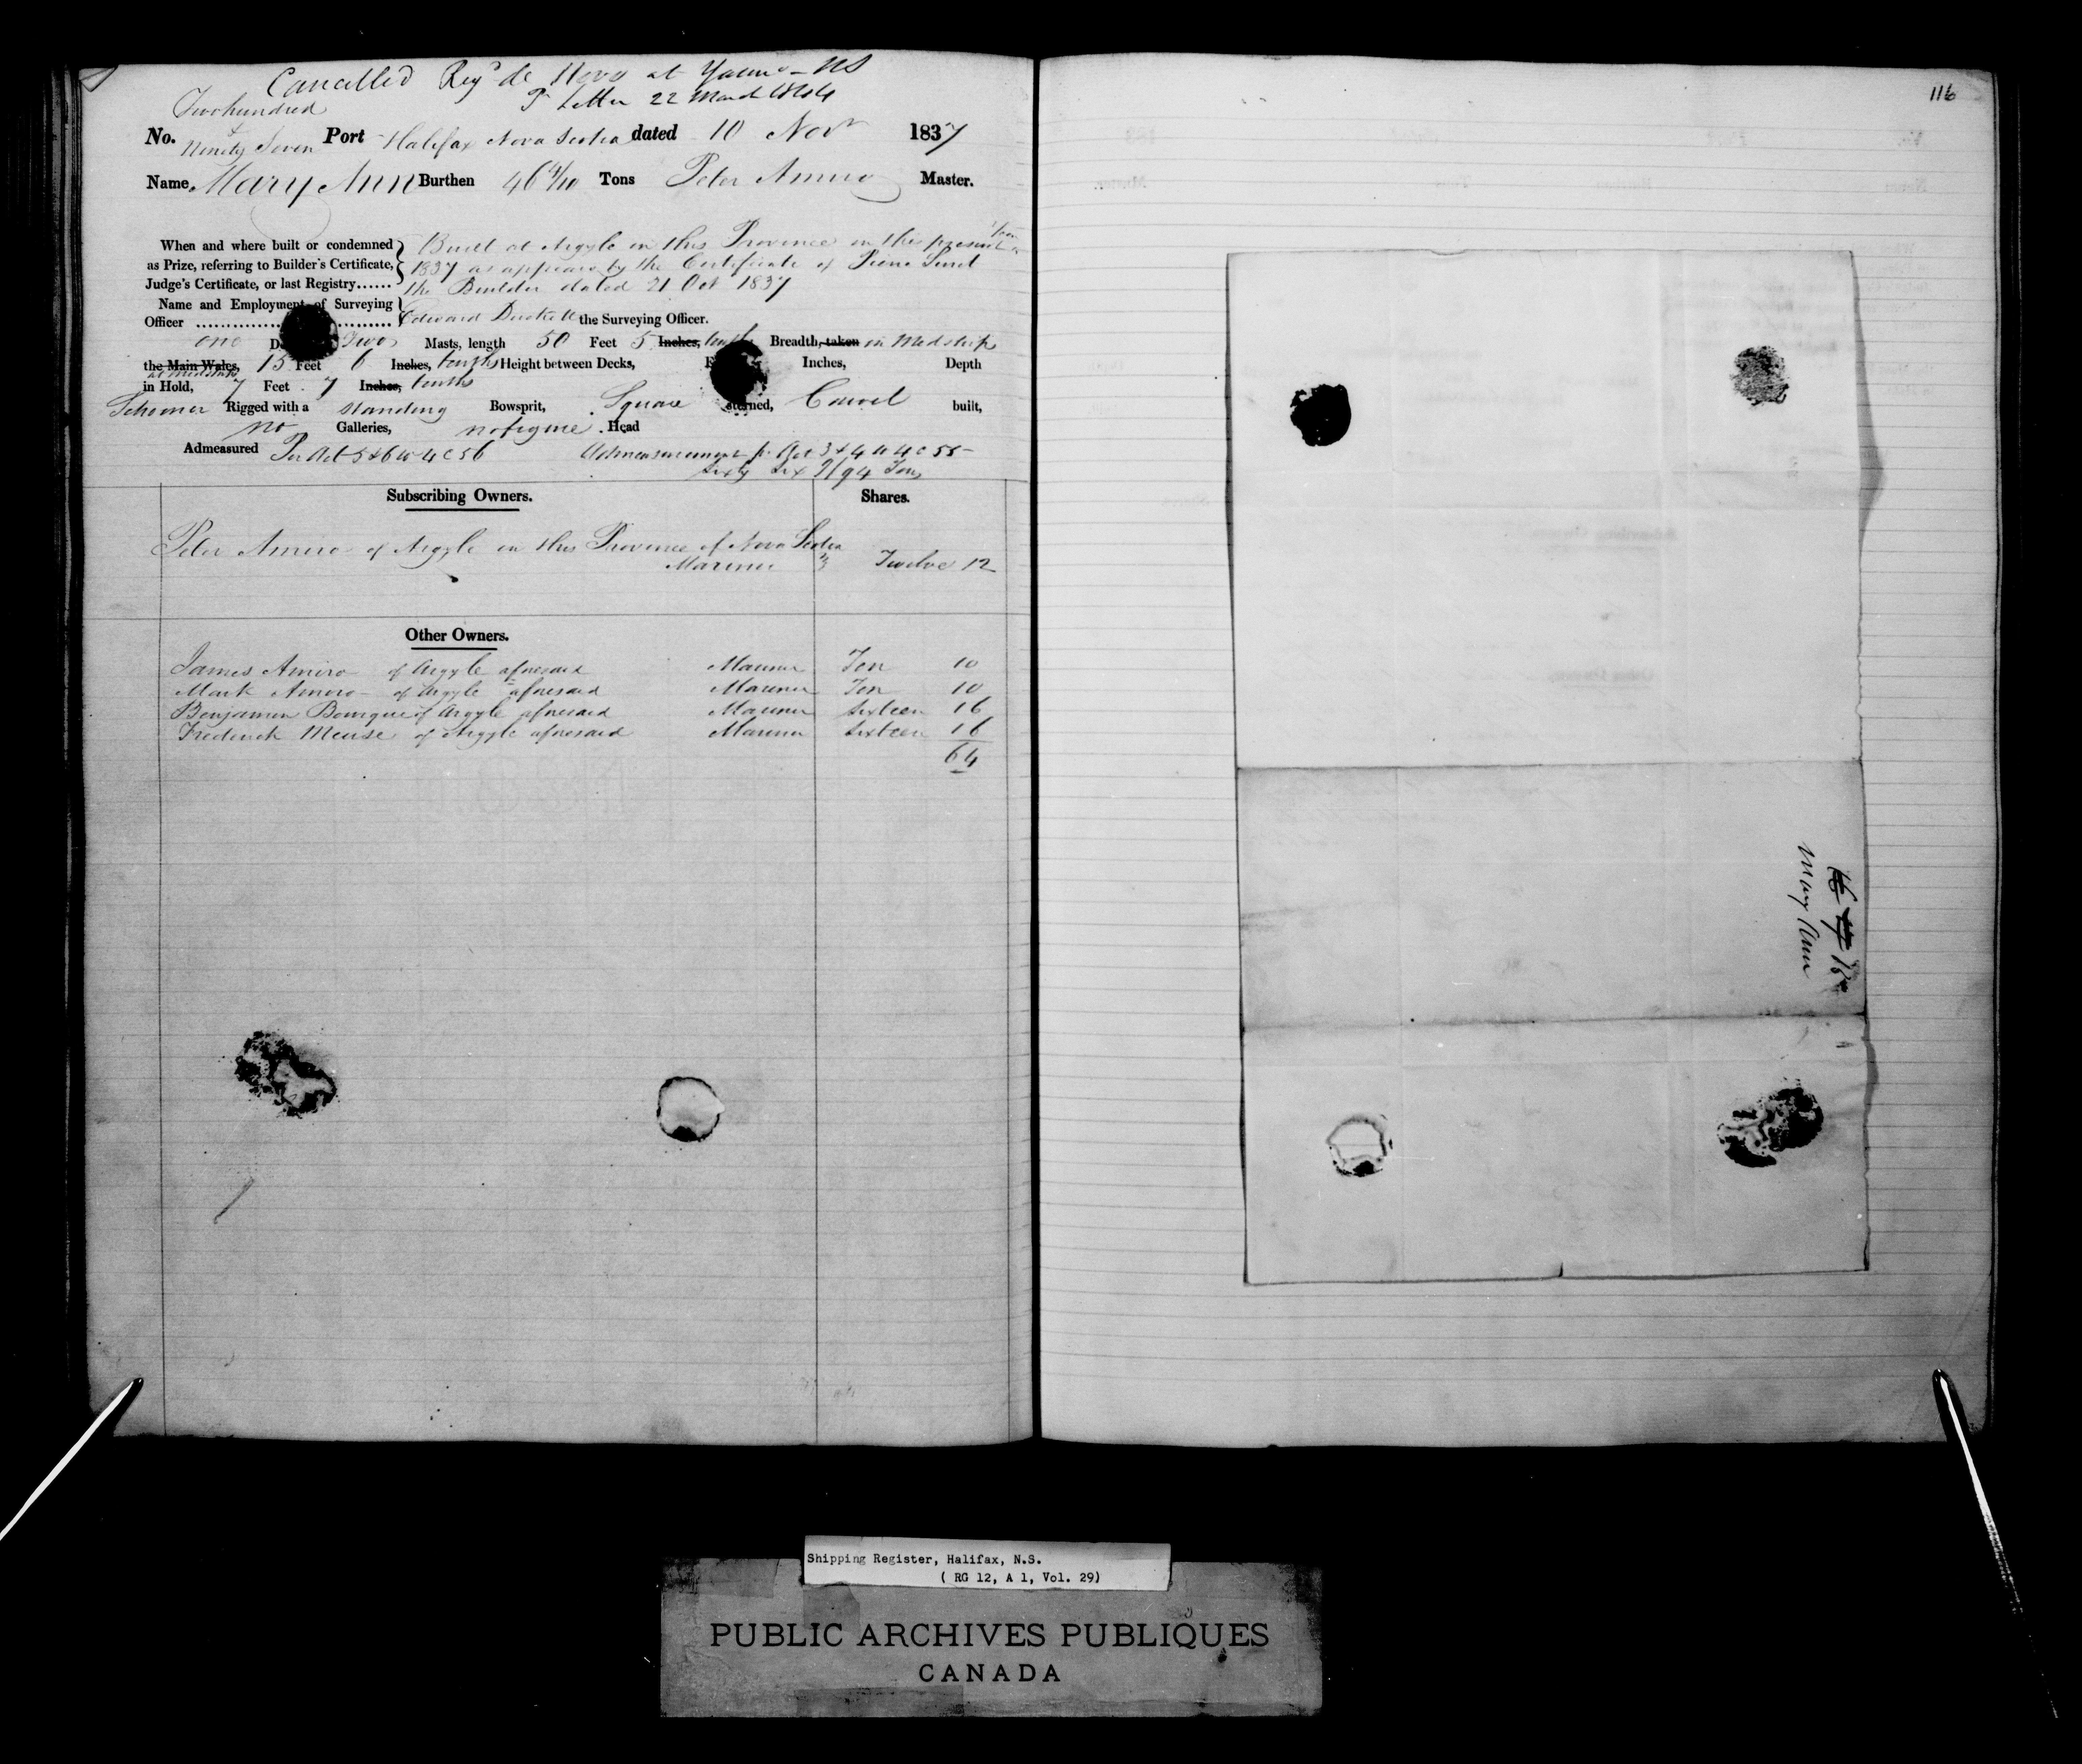 Cancelled Regd de Novo at Yarmo - NS
Pr Letter 22 March 1844
Two hundred
&
No. Ninety Seven Port Halifax Nova Scotia dated 10 Novr 1837
Name, Mary Ann Burthen 46 4/10 Tons Peter Amiro Master.
When and where built or condemned as Prize, referring to Builder's Certificate, Judge's Certificate, or last Registry......
Built at Argyle in this Province in this present Year
1837 as appears by the Certificate of Pierre Suret
the Builder dated 21 Oct 1837
Name and Employment of Surveying Officer
Edward Duckett the Surveying Officer.
one D Two Masts, length 50 Feet 5 Inches, tenths Breadth, taken in Midships
the Main Wales, 15 Feet 6 Inches, tenths Height between Decks, F Inches, Depth
at Midships
in Hold, 7 Feet 7 Inches, tenths
Schooner Rigged with a standing Bowsprit, Square sterned, Carvel built,
no Galleries, no figure Head
Admeasured Per Act 5 & 6 W 4 C 56 Admeasurement pr Act 3 & 4 W 4 C 55
Sixty Six 9/94 Tons
Subscribing Owners. Shares.
Peter Amiro of Argyle in this Province of Nova Scotia
Mariner Twelve 12
Other Owners.
James Amiro of Argyle aforesaid Mariner Ten 10
Mark Amiro of Argyle aforesaid Mariner Ten 10
Benjamin Bourque of Argyle aforesaid Mariner Sixteen 16
Frederick Meuse of Argyle aforesaid Mariner Sixteen 16
64
116
Mary Ann
Shipping Register, Halifax, N.S.
( RG 12, A 1, Vol. 29)
PUBLIC ARCHIVES PUBLIQUES
CANADA